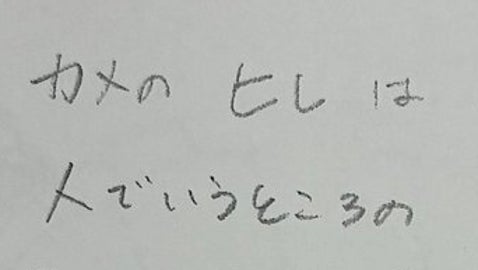 カメの ヒレ は
人でいうところの